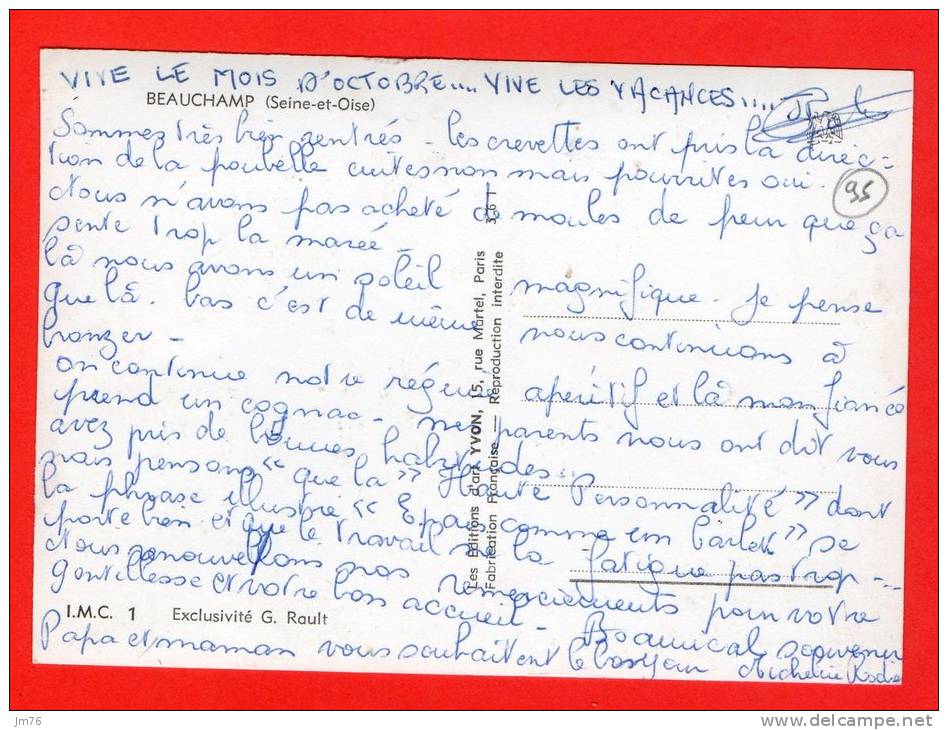 VIVE LE MOIS D'OCTOBRE.... VIVE LES VACANCES....
BEAUCHAMP (Seine-et-Oise)
Sommes très bien rentrés - les crevettes ont pris la direc-
tion de la poubelle cuites non mais pourrites oui.
95
Nous n'avons pas acheté de moules de peur que ça
sente trop la marée -
là nous avons un soleil magnifique. Je pense
que là. bas c'est de même nous continuons à
bronzer -
on continue notre régime apéritif et là mon fiancé
prend un cognac - mes parents nous ont dit vous
avez pris de bonnes habitudes...
mais pensons "que la" Haute Personnalité" dont
la phrase illustre " Epais comme un " se
porte bien et que le travail ne la fatigue pas trop -
Nous renouvellons nos remerciements pour votre
gentillesse et votre bon accueil - Bon amical souvenir
Papa et maman vous souhaitent le bonjour Micheline
Les Editions d'art YVON, 15, rue Martel, Paris
Fabrication Française — Reproduction interdite
I.M.C. 1 Exclusivité G. Rault
jm76
www.delcampe.net